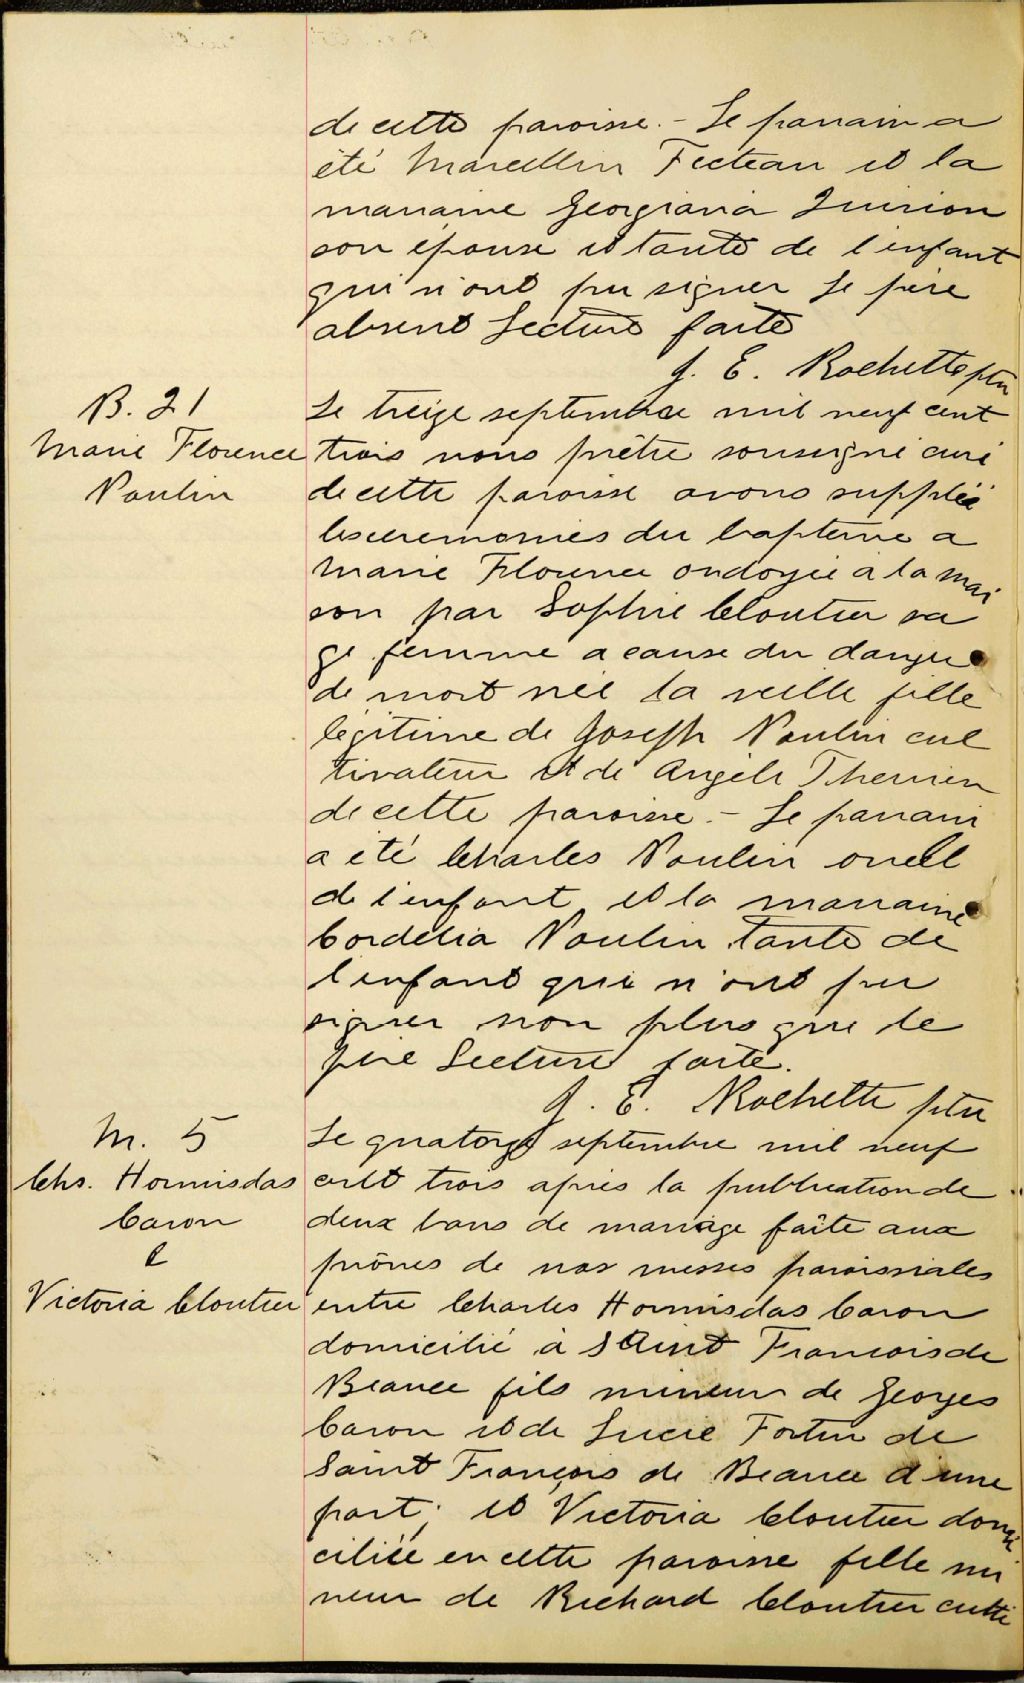 de cette paroisse. - Le parrain a
été Marcellin Fecteau et la
marraine Georgiana Quirion
son épouse et tante de l'enfant
qui n'ont pu signer Le père
absent Lecture faite
J. E. Rochette ptre
B. 21
Marie Florence
Poulin
Le treize septembre mil neuf cent
trois nous prêtre soussigné curé
de cette paroisse avons supplée
les ceremonies du bapteme a
Marie Florence ondoyée a la mai
son par Sophie Cloutier sa
ge femme a cause du danger
de mort née la veille fille
légitime de Joseph Poulin cul
tivateur et de Angèle Therrien
de cette paroisse. - Le parrain
a été Charles Poulin oncle
de l'enfant et la marraine
Cordelia Poulin tante de
l'enfant qui n'ont pu
signer non plus que le
père Lecture faite.
J. E. Rochette ptre
M. 5
Chs. Hormisdas
Caron
&
Victoria Cloutier
Le quatorze septembre mil neuf
cent trois après la publication de
deux bans de mariage faîte aux
prônes de nos messes paroissiales
entre Charles Hormisdas Caron
domicilié à Saint Francois de
Beauce fils mineur de Georges
Caron et de Lucie Fortin de
Saint François de Beauce d'une
part; et Victoria Cloutier domi
ciliée en cette paroisse fille mi
neur de Richard Cloutier culti